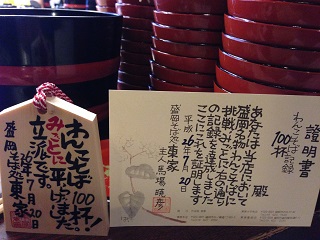 わんこそば100杯!
みごとに平げました。
立派です。
26年7月20日
盛岡そば処東家
証明書
わんこそば記録
100杯
あなたは当店において
盛岡名物わんこそばに
挑戦みごとに右の通り
の記録を達成しました
ここにこれを証明します
平成26年7月20日
盛岡そば処 東家
主人 馬場暁彦
殿